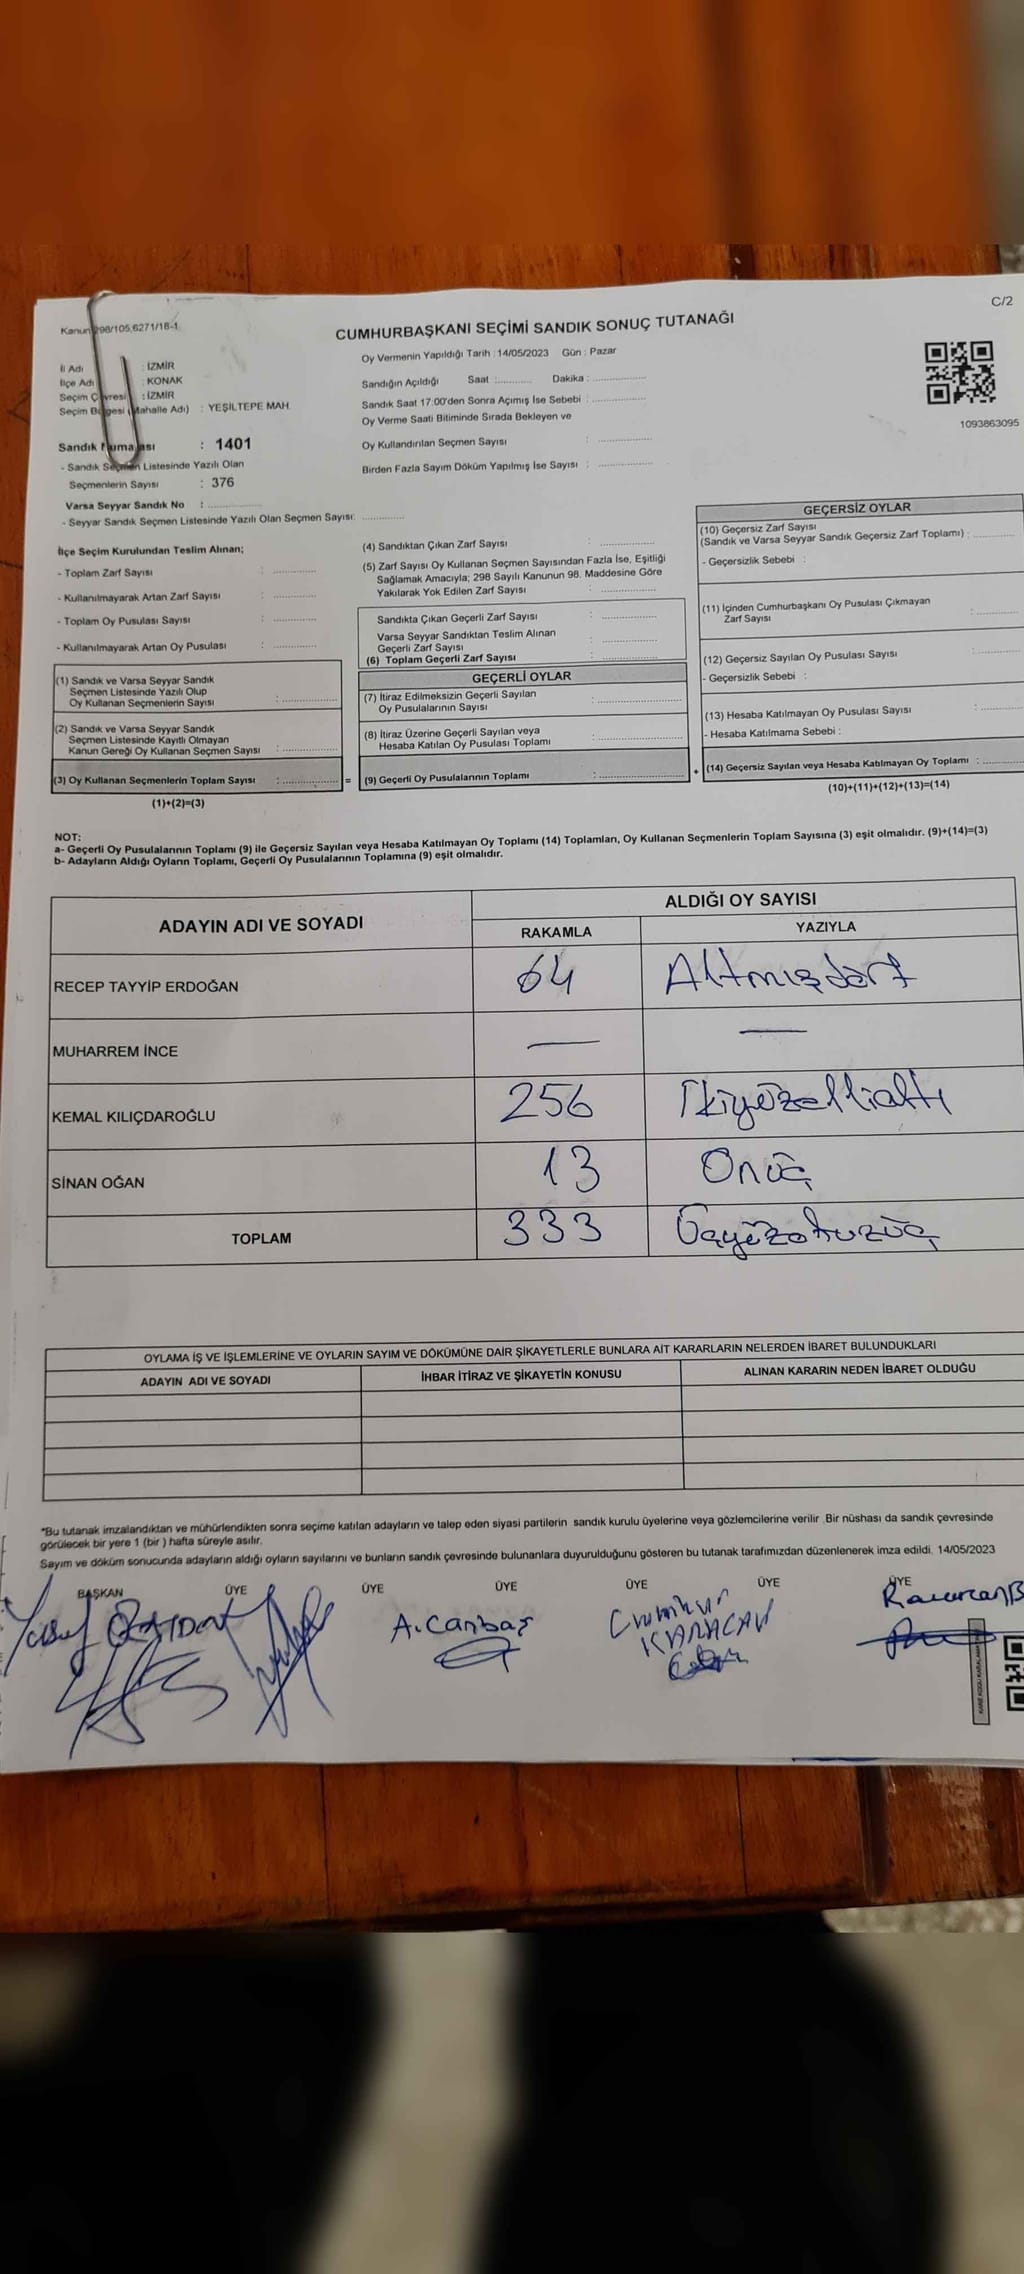 C/2
Kanun 298/105,6271/18-1
CUMHURBAŞKANI SEÇİMİ SANDIK SONUÇ TUTANAĞI
İl Adı : İZMİR
İlçe Adı : KONAK
Seçim Çevresi : İZMİR
Seçim Bölgesi (Mahalle Adı) : YEŞİLTEPE MAH.
Sandık Numarası : 1401
- Sandık Seçmen Listesinde Yazılı Olan
Seçmenlerin Sayısı : 376
Varsa Seyyar Sandık No :
- Seyyar Sandık Seçmen Listesinde Yazılı Olan Seçmen Sayısı:
Oy Vermenin Yapıldığı Tarih : 14/05/2023 Gün : Pazar
Sandığın Açıldığı Saat : Dakika :
Sandık Saat 17:00'den Sonra Açımış İse Sebebi :
Oy Verme Saati Bitiminde Sırada Bekleyen ve
Oy Kullandırılan Seçmen Sayısı :
Birden Fazla Sayım Döküm Yapılmış İse Sayısı :
1093863095
İlçe Seçim Kurulundan Teslim Alınan;
- Toplam Zarf Sayısı :
- Kullanılmayarak Artan Zarf Sayısı :
- Toplam Oy Pusulası Sayısı :
- Kullanılmayarak Artan Oy Pusulası :
(1) Sandık ve Varsa Seyyar Sandık
Seçmen Listesinde Yazılı Olup
Oy Kullanan Seçmenlerin Sayısı :
(2) Sandık ve Varsa Seyyar Sandık
Seçmen Listesinde Kayıtlı Olmayan
Kanun Gereği Oy Kullanan Seçmen Sayısı :
(3) Oy Kullanan Seçmenlerin Toplam Sayısı : =
(1)+(2)=(3)
(4) Sandıktan Çıkan Zarf Sayısı :
(5) Zarf Sayısı Oy Kullanan Seçmen Sayısından Fazla İse, Eşitliği
Sağlamak Amacıyla; 298 Sayılı Kanunun 98. Maddesine Göre
Yakılarak Yok Edilen Zarf Sayısı :
Sandıkta Çıkan Geçerli Zarf Sayısı :
Varsa Seyyar Sandıktan Teslim Alınan
Geçerli Zarf Sayısı :
(6) Toplam Geçerli Zarf Sayısı :
GEÇERLİ OYLAR
(7) İtiraz Edilmeksizin Geçerli Sayılan
Oy Pusulalarının Sayısı :
(8) İtiraz Üzerine Geçerli Sayılan veya
Hesaba Katılan Oy Pusulası Toplamı :
(9) Geçerli Oy Pusulalarının Toplamı : +
GEÇERSİZ OYLAR
(10) Geçersiz Zarf Sayısı
(Sandık ve Varsa Seyyar Sandık Geçersiz Zarf Toplamı) :
- Geçersizlik Sebebi :
(11) İçinden Cumhurbaşkanı Oy Pusulası Çıkmayan
Zarf Sayısı :
(12) Geçersiz Sayılan Oy Pusulası Sayısı :
- Geçersizlik Sebebi :
(13) Hesaba Katılmayan Oy Pusulası Sayısı :
- Hesaba Katılmama Sebebi :
(14) Geçersiz Sayılan veya Hesaba Katılmayan Oy Toplamı :
(10)+(11)+(12)+(13)=(14)
NOT:
a- Geçerli Oy Pusulalarının Toplamı (9) ile Geçersiz Sayılan veya Hesaba Katılmayan Oy Toplamı (14) Toplamları, Oy Kullanan Seçmenlerin Toplam Sayısına (3) eşit olmalıdır. (9)+(14)=(3)
b- Adayların Aldığı Oyların Toplamı, Geçerli Oy Pusulalarının Toplamına (9) eşit olmalıdır.
ADAYIN ADI VE SOYADI ALDIĞI OY SAYISI
RAKAMLA YAZIYLA
RECEP TAYYİP ERDOĞAN 64 Altmışdört
MUHARREM İNCE — —
KEMAL KILIÇDAROĞLU 256 İkiyüzellialtı
SİNAN OĞAN 13 Onüç
TOPLAM 333 Üçyüzotuzüç
OYLAMA İŞ VE İŞLEMLERİNE VE OYLARIN SAYIM VE DÖKÜMÜNE DAİR ŞİKAYETLERLE BUNLARA AİT KARARLARIN NELERDEN İBARET BULUNDUKLARI
ADAYIN ADI VE SOYADI İHBAR İTİRAZ VE ŞİKAYETİN KONUSU ALINAN KARARIN NEDEN İBARET OLDUĞU
*Bu tutanak imzalandıktan ve mühürlendikten sonra seçime katılan adayların ve talep eden siyasi partilerin sandık kurulu üyelerine veya gözlemcilerine verilir. Bir nüshası da sandık çevresinde
görülecek bir yere 1 (bir) hafta süreyle asılır.
Sayım ve döküm sonucunda adayların aldığı oyların sayılarını ve bunların sandık çevresinde bulunanlara duyurulduğunu gösteren bu tutanak tarafımızdan düzenlenerek imza edildi. 14/05/2023
BAŞKAN ÜYE ÜYE ÜYE ÜYE ÜYE ÜYE
Yusuf
A. Canbaş
KARACAN